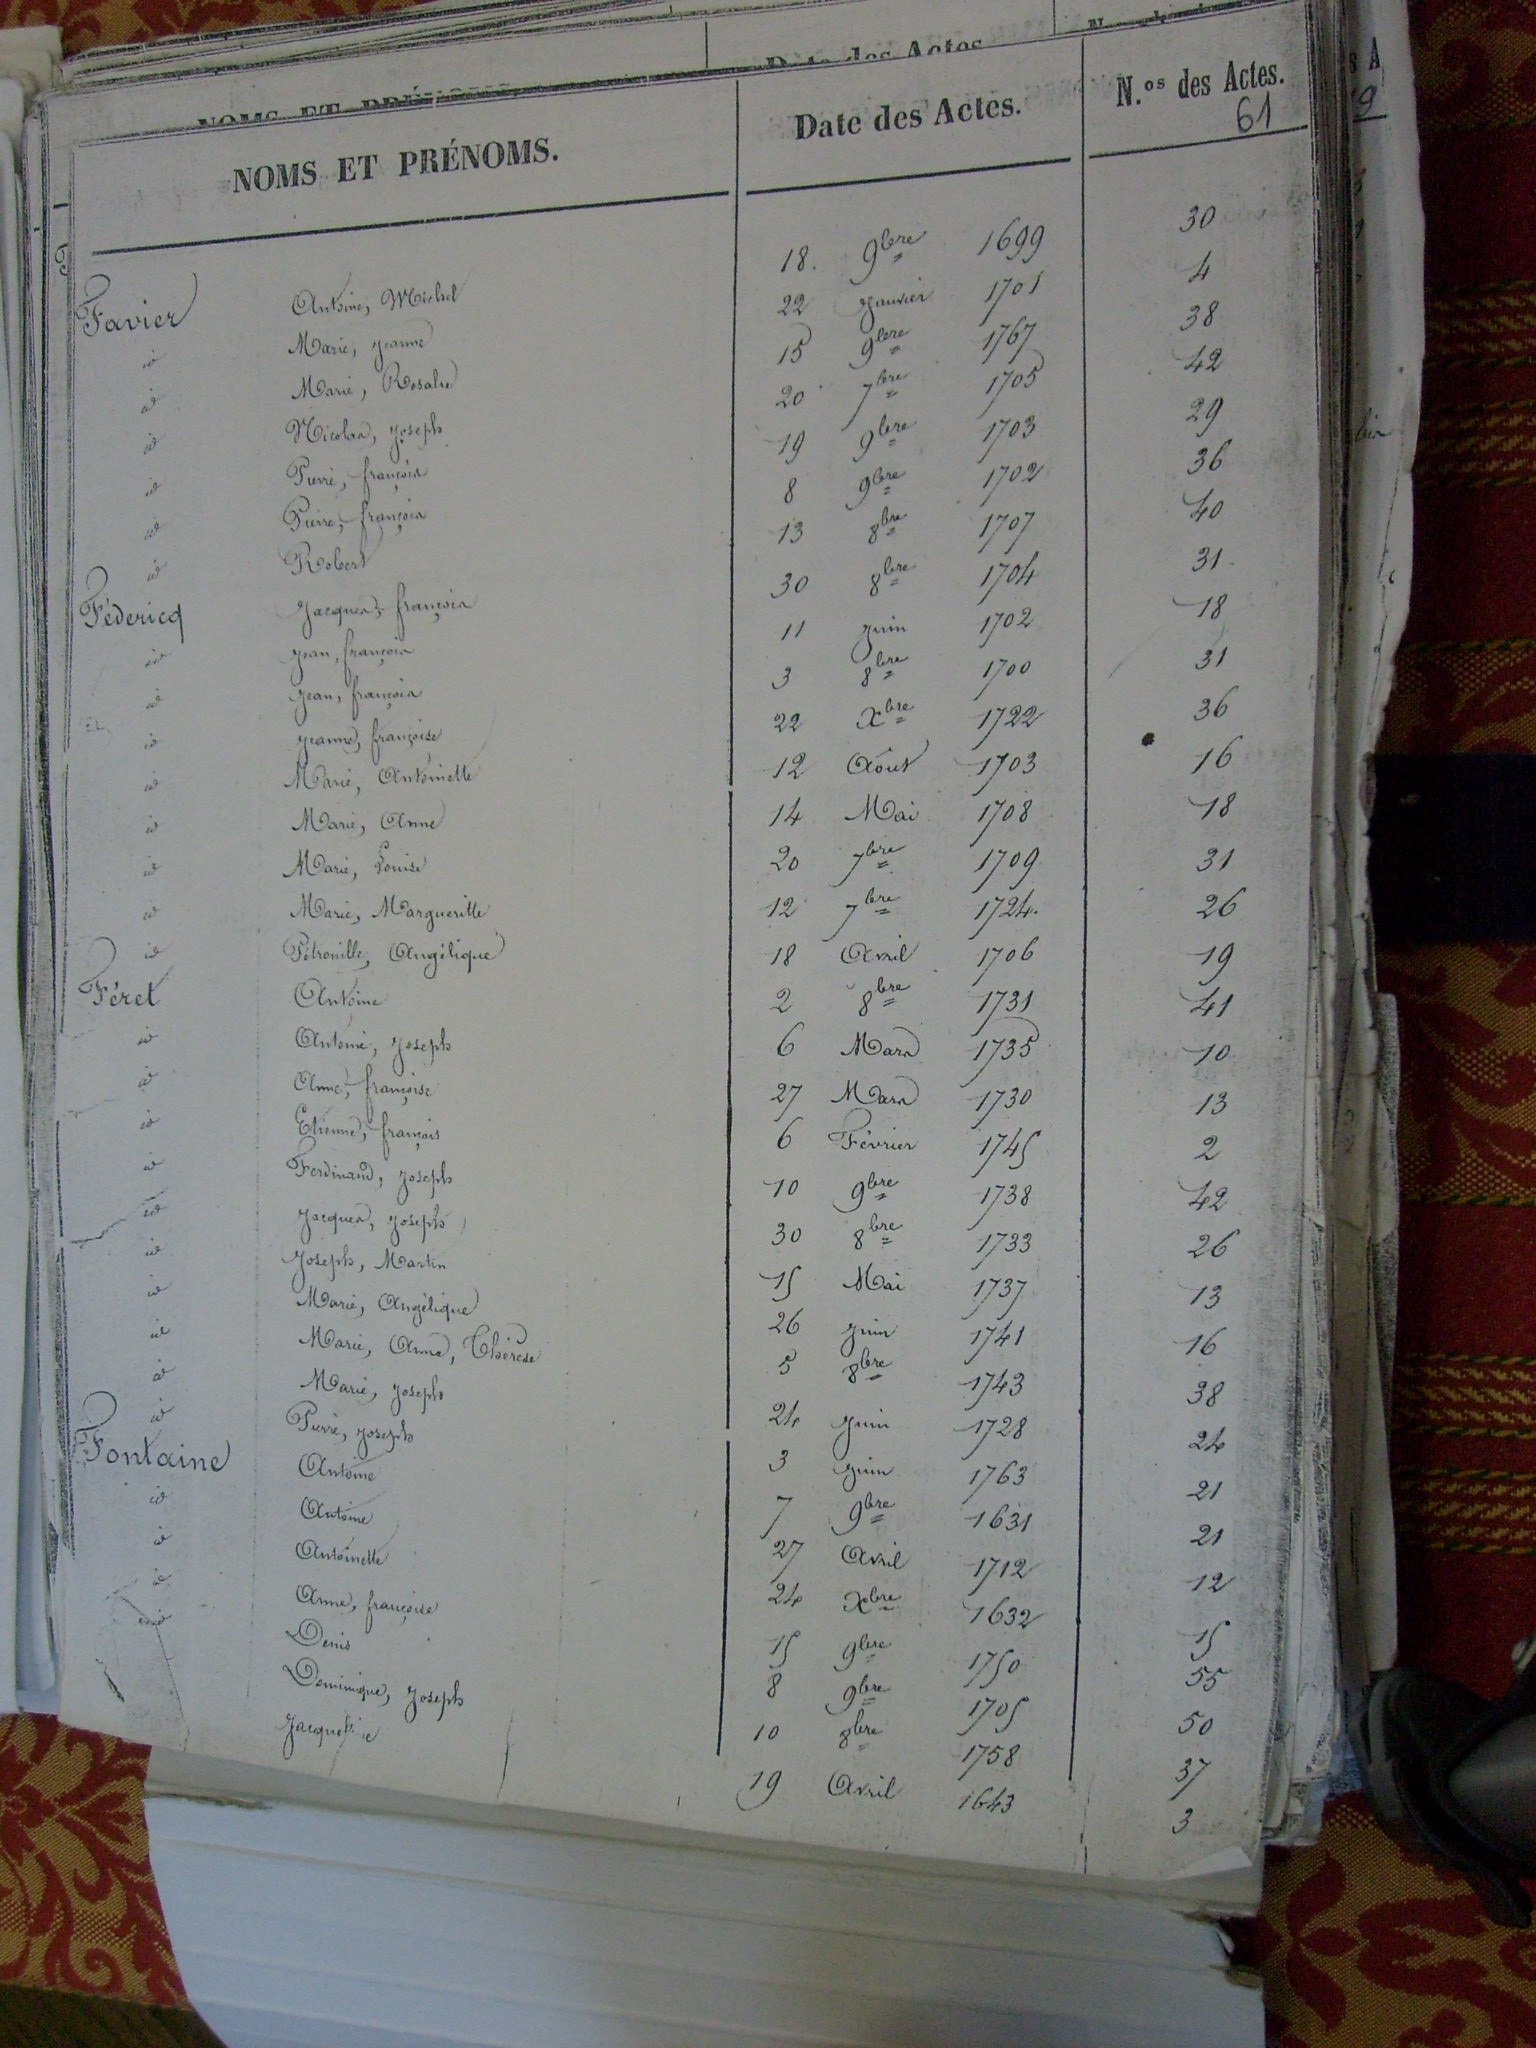 NOMS ET PRÉNOMS. Date des Actes. N.os des Actes.
61
Favier Antoine, Michel 18. 9bre 1699 30
id Marie, Jeanne 22 Janvier 1701 4
id Marie, Rosalie 15 9bre 1767 38
id Nicolas, Joseph 20 7bre 1705 42
id Pierre, françois 19 9bre 1703 29
id Pierre, françois 8 9bre 1702 36
id Robert 13 8bre 1707 40
Fédericq Jacques, françois 30 8bre 1704 31
id Jean, françois 11 Juin 1702 18
id Jean, françois 3 8bre 1700 31
id Jeanne, françoise 22 Xbre 1722 36
id Marie, Antoinette 12 Août 1703 16
id Marie, Anne 14 Mai 1708 18
id Marie, Louise 20 7bre 1709 31
id Marie, Marguerite 12 7bre 1724 26
id Pétronille, Angélique 18 Avril 1706 19
Féret Antoine 2 8bre 1731 41
id Antoine, Joseph 6 Mars 1735 10
id Anne, françoise 27 Mars 1730 13
id Etienne, françois 6 Février 1745 2
id Ferdinand, Joseph 10 9bre 1738 42
id Jacques, Joseph 30 8bre 1733 26
id Joseph, Martin 15 Mai 1737 13
id Marie, Angélique 26 Juin 1741 16
id Marie, Anne, Thérèse 5 8bre 1743 38
id Marie, Joseph 24 Juin 1728 24
id Pierre, Joseph 3 Juin 1763 21
Fontaine Antoine 7 9bre 1631 21
id Antoine 27 Avril 1712 12
id Antoinette 24 Xbre 1632 15
id Anne, françoise 15 9bre 1750 55
id Denis 8 9bre 1705 50
Dominique, Joseph 10 8bre 1758 37
Jacqueline 19 Avril 1643 3